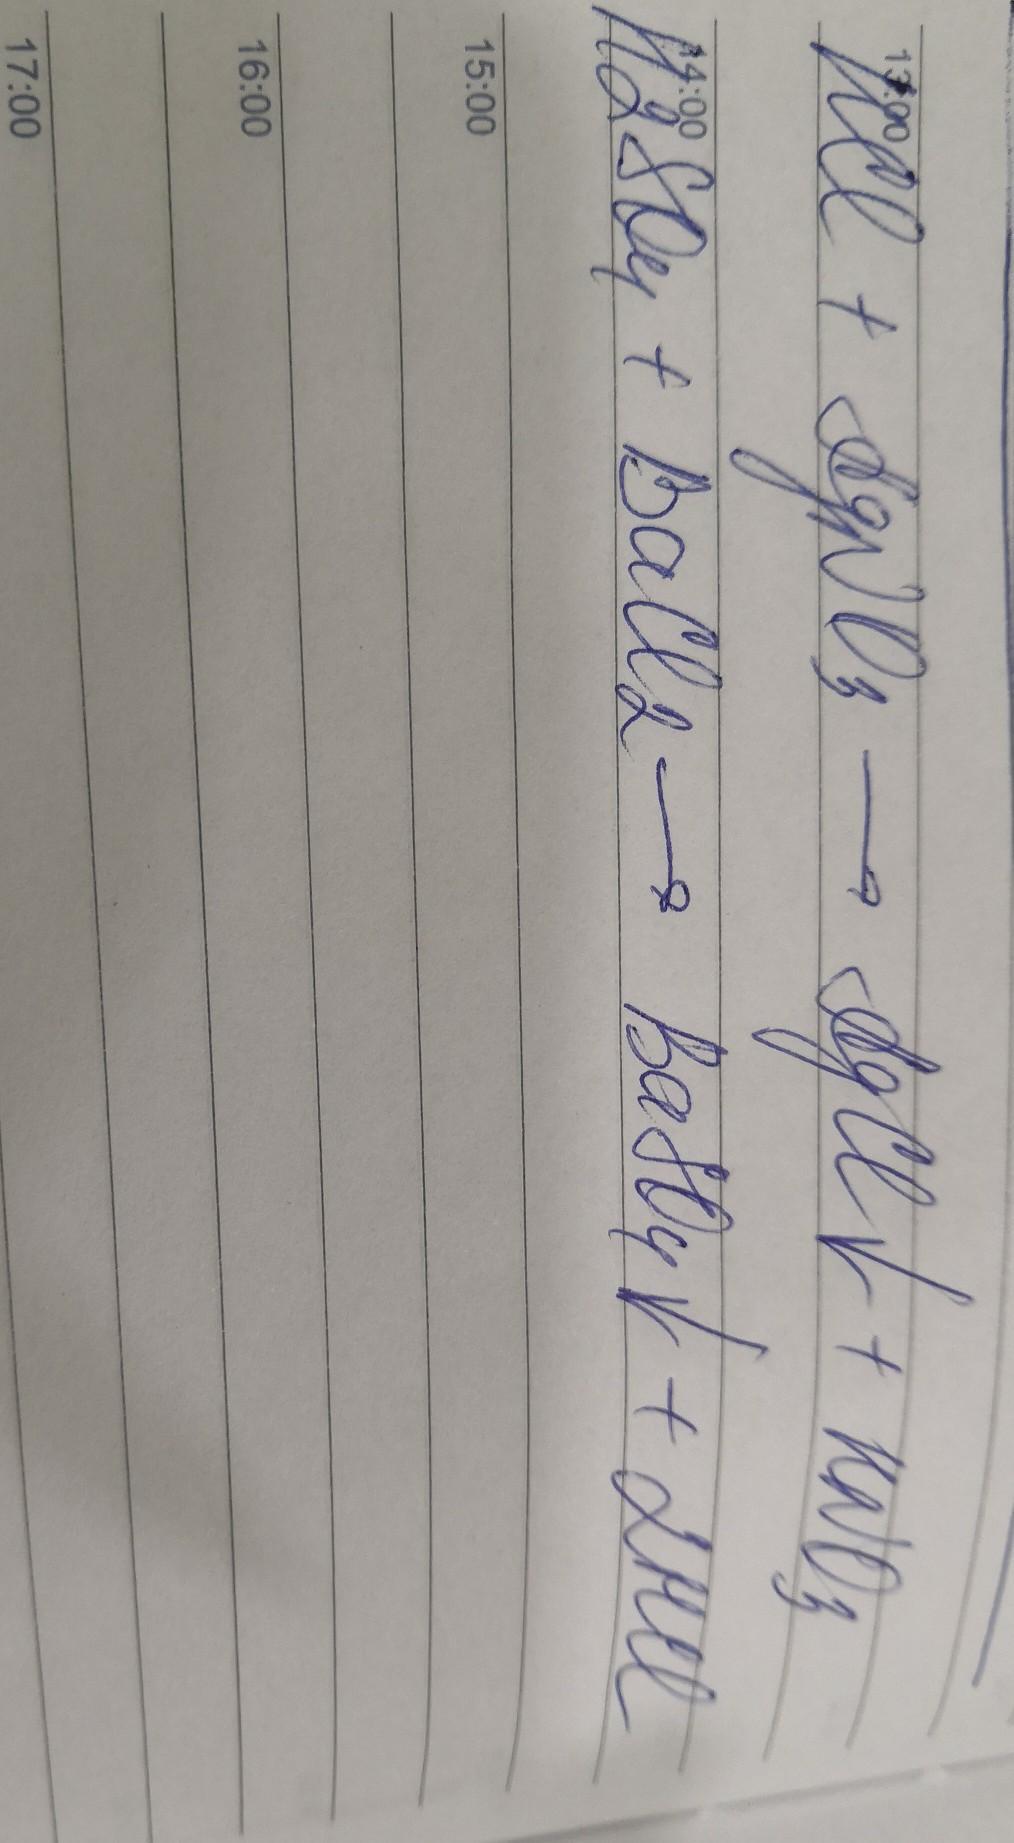 13:00
HCl + AgNO3 → AgCl↓ + HNO3
14:00
H2SO4 + BaCl2 → BaSO4↓ + 2HCl
15:00
16:00
17:00